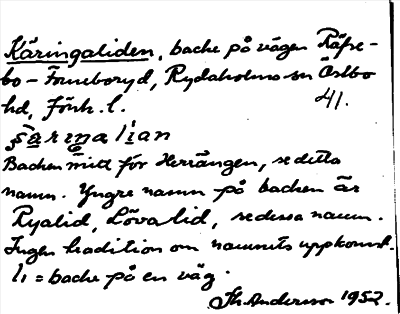 Käringaliden, backe på vägen Räfse-
bo - Forneboryd, Rydaholms sn Östbo
hd, Jönk. l. 41.
Backen mitt för Herrängen, se detta
namn. Yngre namn på backen är
Ryalid, Lövalid, se dessa namn.
Ingen tradition om namnets uppkomst.
li = backe på en väg.
Th. Andersson 1952.